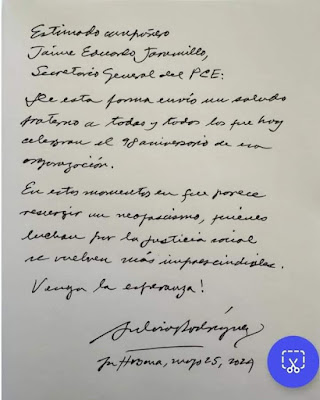 Estimado compañero
Jaime Eduardo Jaramillo,
Secretario General del PCE:
De esta forma envío un saludo
fraterno a todas y todos los que hoy
celebran el 98 aniversario de esa
organización.
En estos momentos en que parece
resurgir un neofascismo, quienes
luchan por la justicia social
se vuelven más imprescindibles.
Venga la esperanza!
Silvio Rodríguez
La Habana, mayo 25, 2024